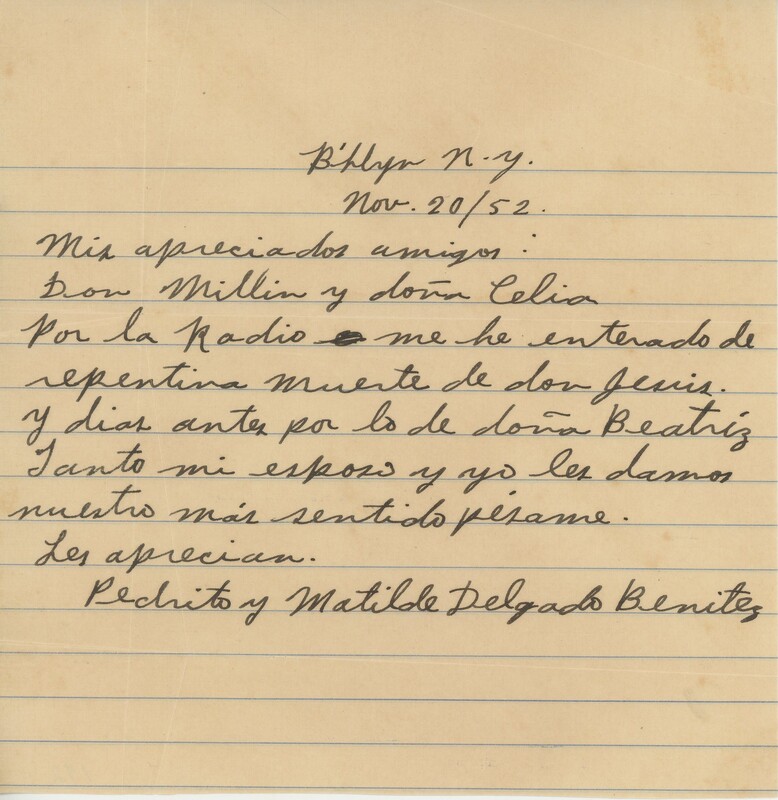 B'klyn N.Y.
Nov. 20/52.
Mis apreciados amigos:
Don Millin y doña Celia
Por la Radio me he enterado de
repentina muerte de don Jesús.
Y dias antes por lo de doña Beatríz
Tanto mi esposo y yo les damos
nuestro más sentido pésame.
Les aprecian.
Pedrito y Matilde Delgado Benitez